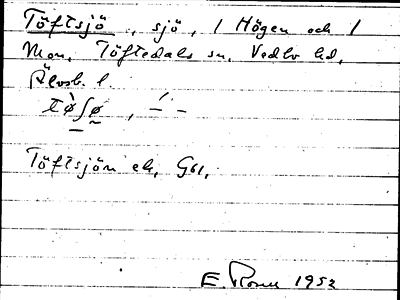 Töftsjö, sjö, 1 Högen och 1
Mon, Töftedals sn, Vedbo hd,
Älvsb. l.
Töftsjön ek, G61,
E. Rosell 1952